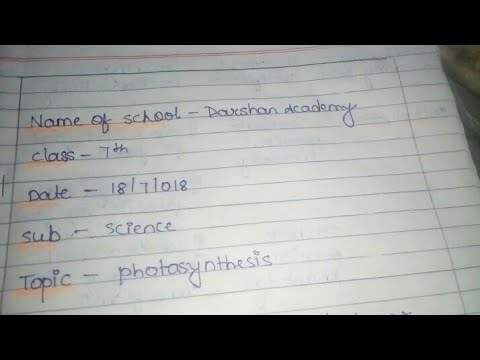 Name of school - Darshan Academy
class - 7th
Date - 18/7/018
Sub - science
Topic - photosynthesis